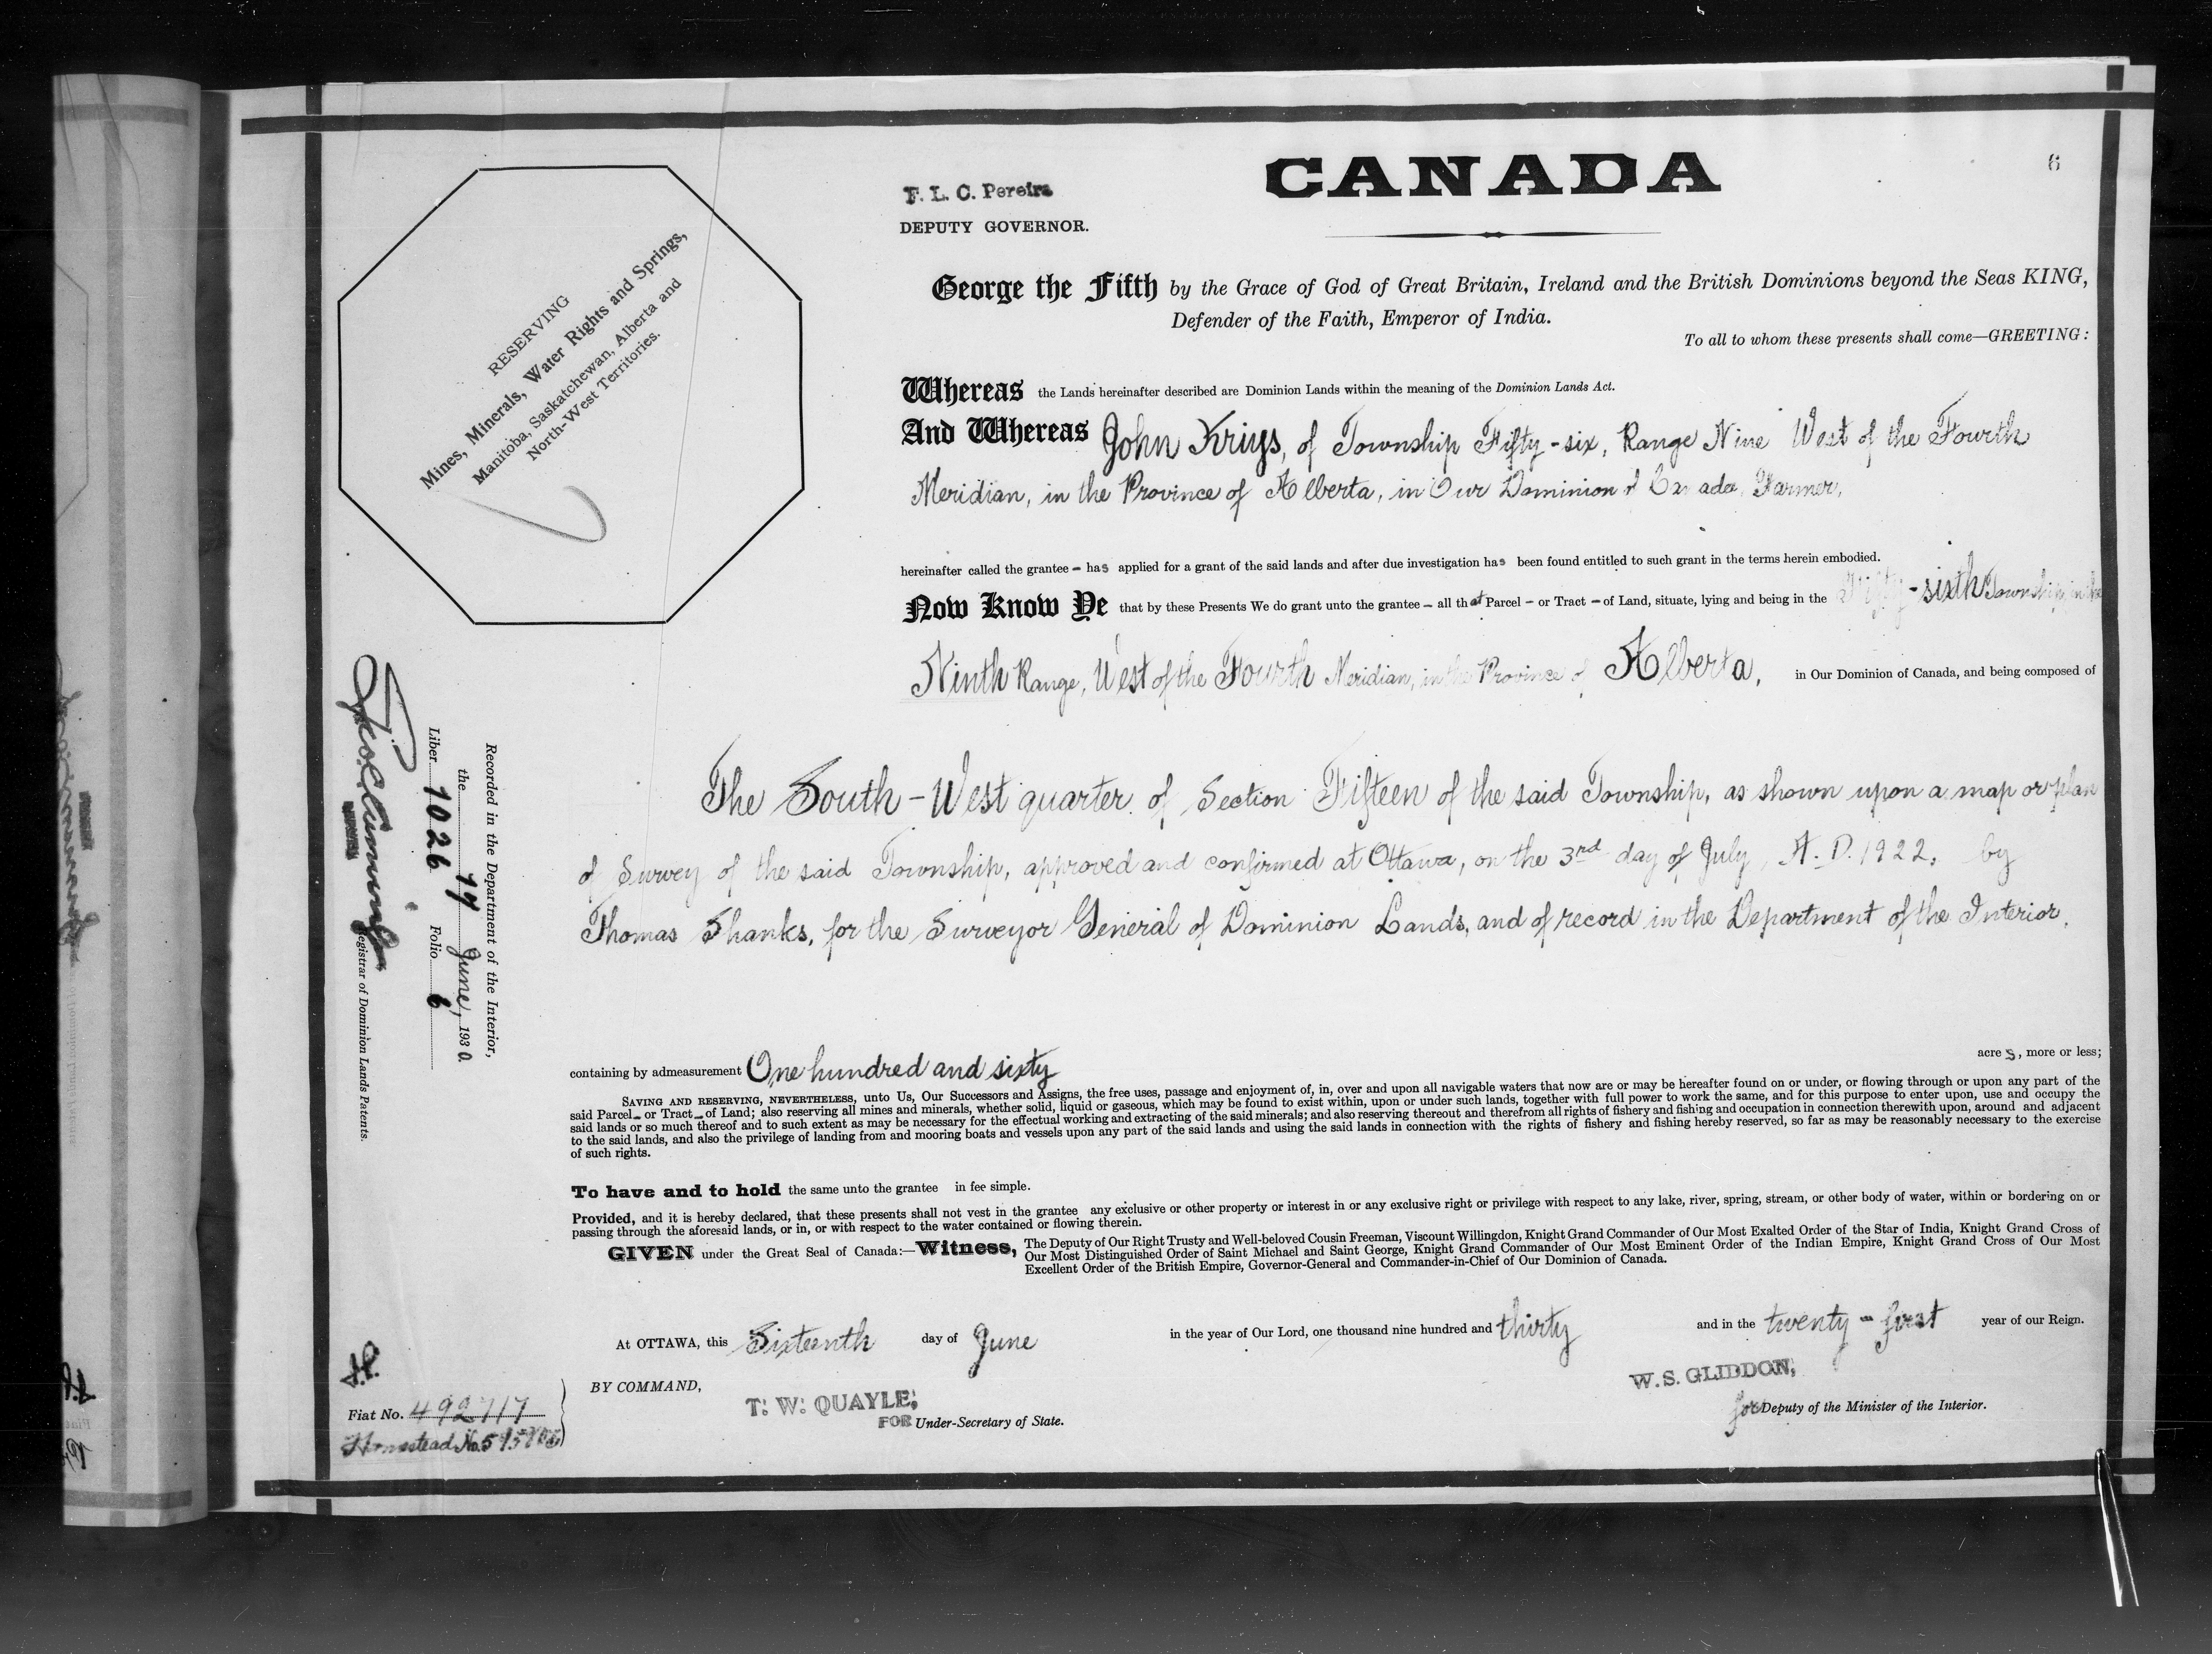 CANADA
6
F. L. C. Pereira
DEPUTY GOVERNOR.
RESERVING
Mines, Minerals, Water Rights and Springs,
Manitoba, Saskatchewan, Alberta and
North-West Territories.
George the Fifth by the Grace of God of Great Britain, Ireland and the British Dominions beyond the Seas KING,
Defender of the Faith, Emperor of India.
To all to whom these presents shall come—GREETING:
Whereas the Lands hereinafter described are Dominion Lands within the meaning of the Dominion Lands Act.
And Whereas John Kriys, of Township Fifty-six, Range Nine West of the Fourth
Meridian, in the Province of Alberta, in Our Dominion of Canada, Farmer,
hereinafter called the grantee - has applied for a grant of the said lands and after due investigation has been found entitled to such grant in the terms herein embodied.
Now Know Ye that by these Presents We do grant unto the grantee - all that Parcel - or Tract - of Land, situate, lying and being in the Fifty-sixth Township, in the
Ninth Range, West of the Fourth Meridian, in the Province of Alberta, in Our Dominion of Canada, and being composed of
The South-West quarter of Section Fifteen of the said Township, as shown upon a map or plan
of Survey of the said Township, approved and confirmed at Ottawa, on the 3rd day of July, A. D. 1922, by
Thomas Shanks, for the Surveyor General of Dominion Lands, and of record in the Department of the Interior.
containing by admeasurement One hundred and sixty acres, more or less;
SAVING AND RESERVING, NEVERTHELESS, unto Us, Our Successors and Assigns, the free uses, passage and enjoyment of, in, over and upon all navigable waters that now are or may be hereafter found on or under, or flowing through or upon any part of the
said Parcel - or Tract - of Land; also reserving all mines and minerals, whether solid, liquid or gaseous, which may be found to exist within, upon or under such lands, together with full power to work the same, and for this purpose to enter upon, use and occupy the
said lands or so much thereof and to such extent as may be necessary for the effectual working and extracting of the said minerals; and also reserving thereout and therefrom all rights of fishery and fishing and occupation in connection therewith upon, around and adjacent
to the said lands, and also the privilege of landing from and mooring boats and vessels upon any part of the said lands and using the said lands in connection with the rights of fishery and fishing hereby reserved, so far as may be reasonably necessary to the exercise
of such rights.
To have and to hold the same unto the grantee in fee simple.
Provided, and it is hereby declared, that these presents shall not vest in the grantee any exclusive or other property or interest in or any exclusive right or privilege with respect to any lake, river, spring, stream, or other body of water, within or bordering on or
passing through the aforesaid lands, or in, or with respect to the water contained or flowing therein.
GIVEN under the Great Seal of Canada:—Witness, The Deputy of Our Right Trusty and Well-beloved Cousin Freeman, Viscount Willingdon, Knight Grand Commander of Our Most Exalted Order of the Star of India, Knight Grand Cross of
Our Most Distinguished Order of Saint Michael and Saint George, Knight Grand Commander of Our Most Eminent Order of the Indian Empire, Knight Grand Cross of Our Most
Excellent Order of the British Empire, Governor-General and Commander-in-Chief of Our Dominion of Canada.
At OTTAWA, this Sixteenth day of June in the year of Our Lord, one thousand nine hundred and thirty and in the twenty-first year of our Reign.
BY COMMAND,
T. W. QUAYLE,
FOR Under-Secretary of State.
W. S. GLIDDON,
for Deputy of the Minister of the Interior.
Recorded in the Department of the Interior,
the 19 June, 1930.
Liber 1026 Folio 6
Registrar of Dominion Lands Patents.
Fiat No. 492717
Homestead No.